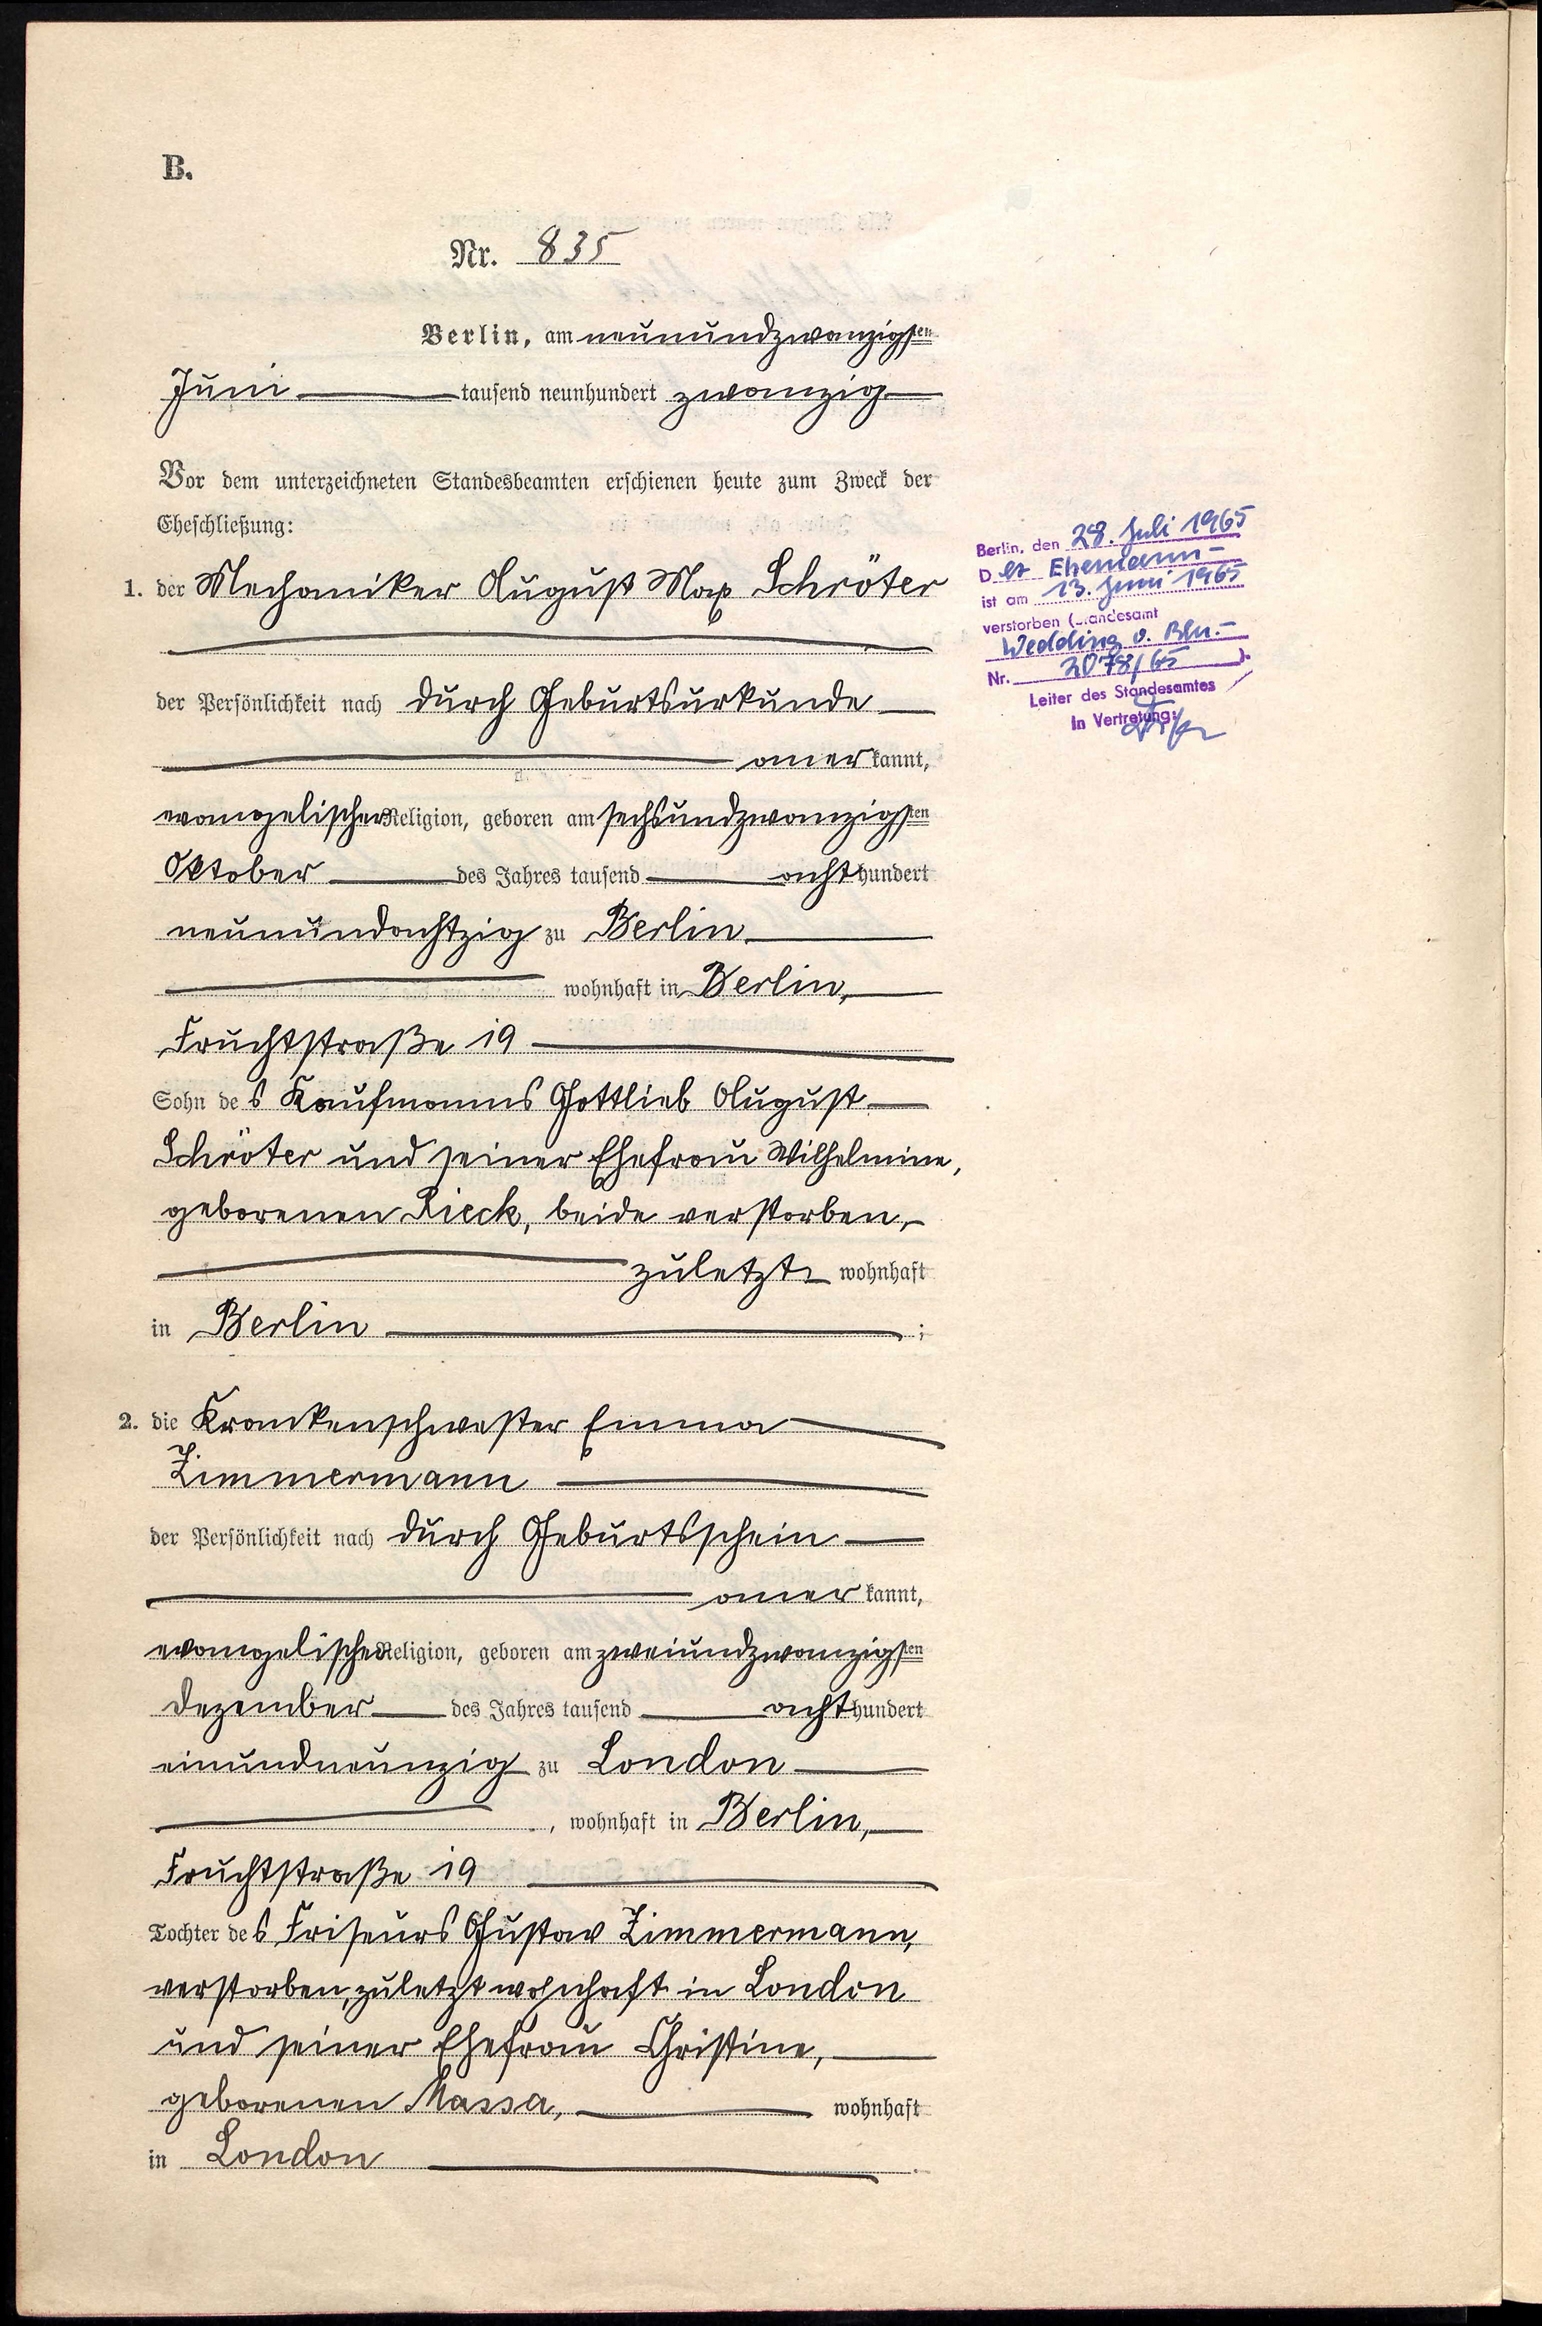 B.
Nr. 835
Berlin, am neunundzwanzigsten
Juni tausend neunhundert zwanzig
Vor dem unterzeichneten Standesbeamten erschienen heute zum Zweck der
Eheschließung:
1. der Mechaniker August Max Schröter
der Persönlichkeit nach durch Geburtsurkunde
anerkannt,
evangelischer Religion, geboren am sechsundzwanzigsten
Oktober des Jahres tausend achthundert
neunundachtzig zu Berlin
wohnhaft in Berlin,
Fruchtstraße 19
Sohn des Kaufmanns Gottlieb August
Schröter und seiner Ehefrau Wilhelmine,
geborenen Rieck, beide verstorben,
zuletzt wohnhaft
in Berlin ;
2. die Krankenschwester Emma
Zimmermann
der Persönlichkeit nach durch Geburtsschein
anerkannt,
evangelischer Religion, geboren am zweiundzwanzigsten
Dezember des Jahres tausend achthundert
einundneunzig zu London
, wohnhaft in Berlin,
Fruchtstraße 19
Tochter des Friseurs Gustav Zimmermann,
verstorben, zuletzt wohnhaft in London
und seiner Ehefrau Christine,
geborenen Massa, wohnhaft
in London .
Berlin, den 28. Juli 1965
Der Ehemann -
ist am 13. Juni 1965
verstorben (Standesamt
Wedding v. Bln. -
Nr. 2078/65 ).
Leiter des Standesamtes
In Vertretung: